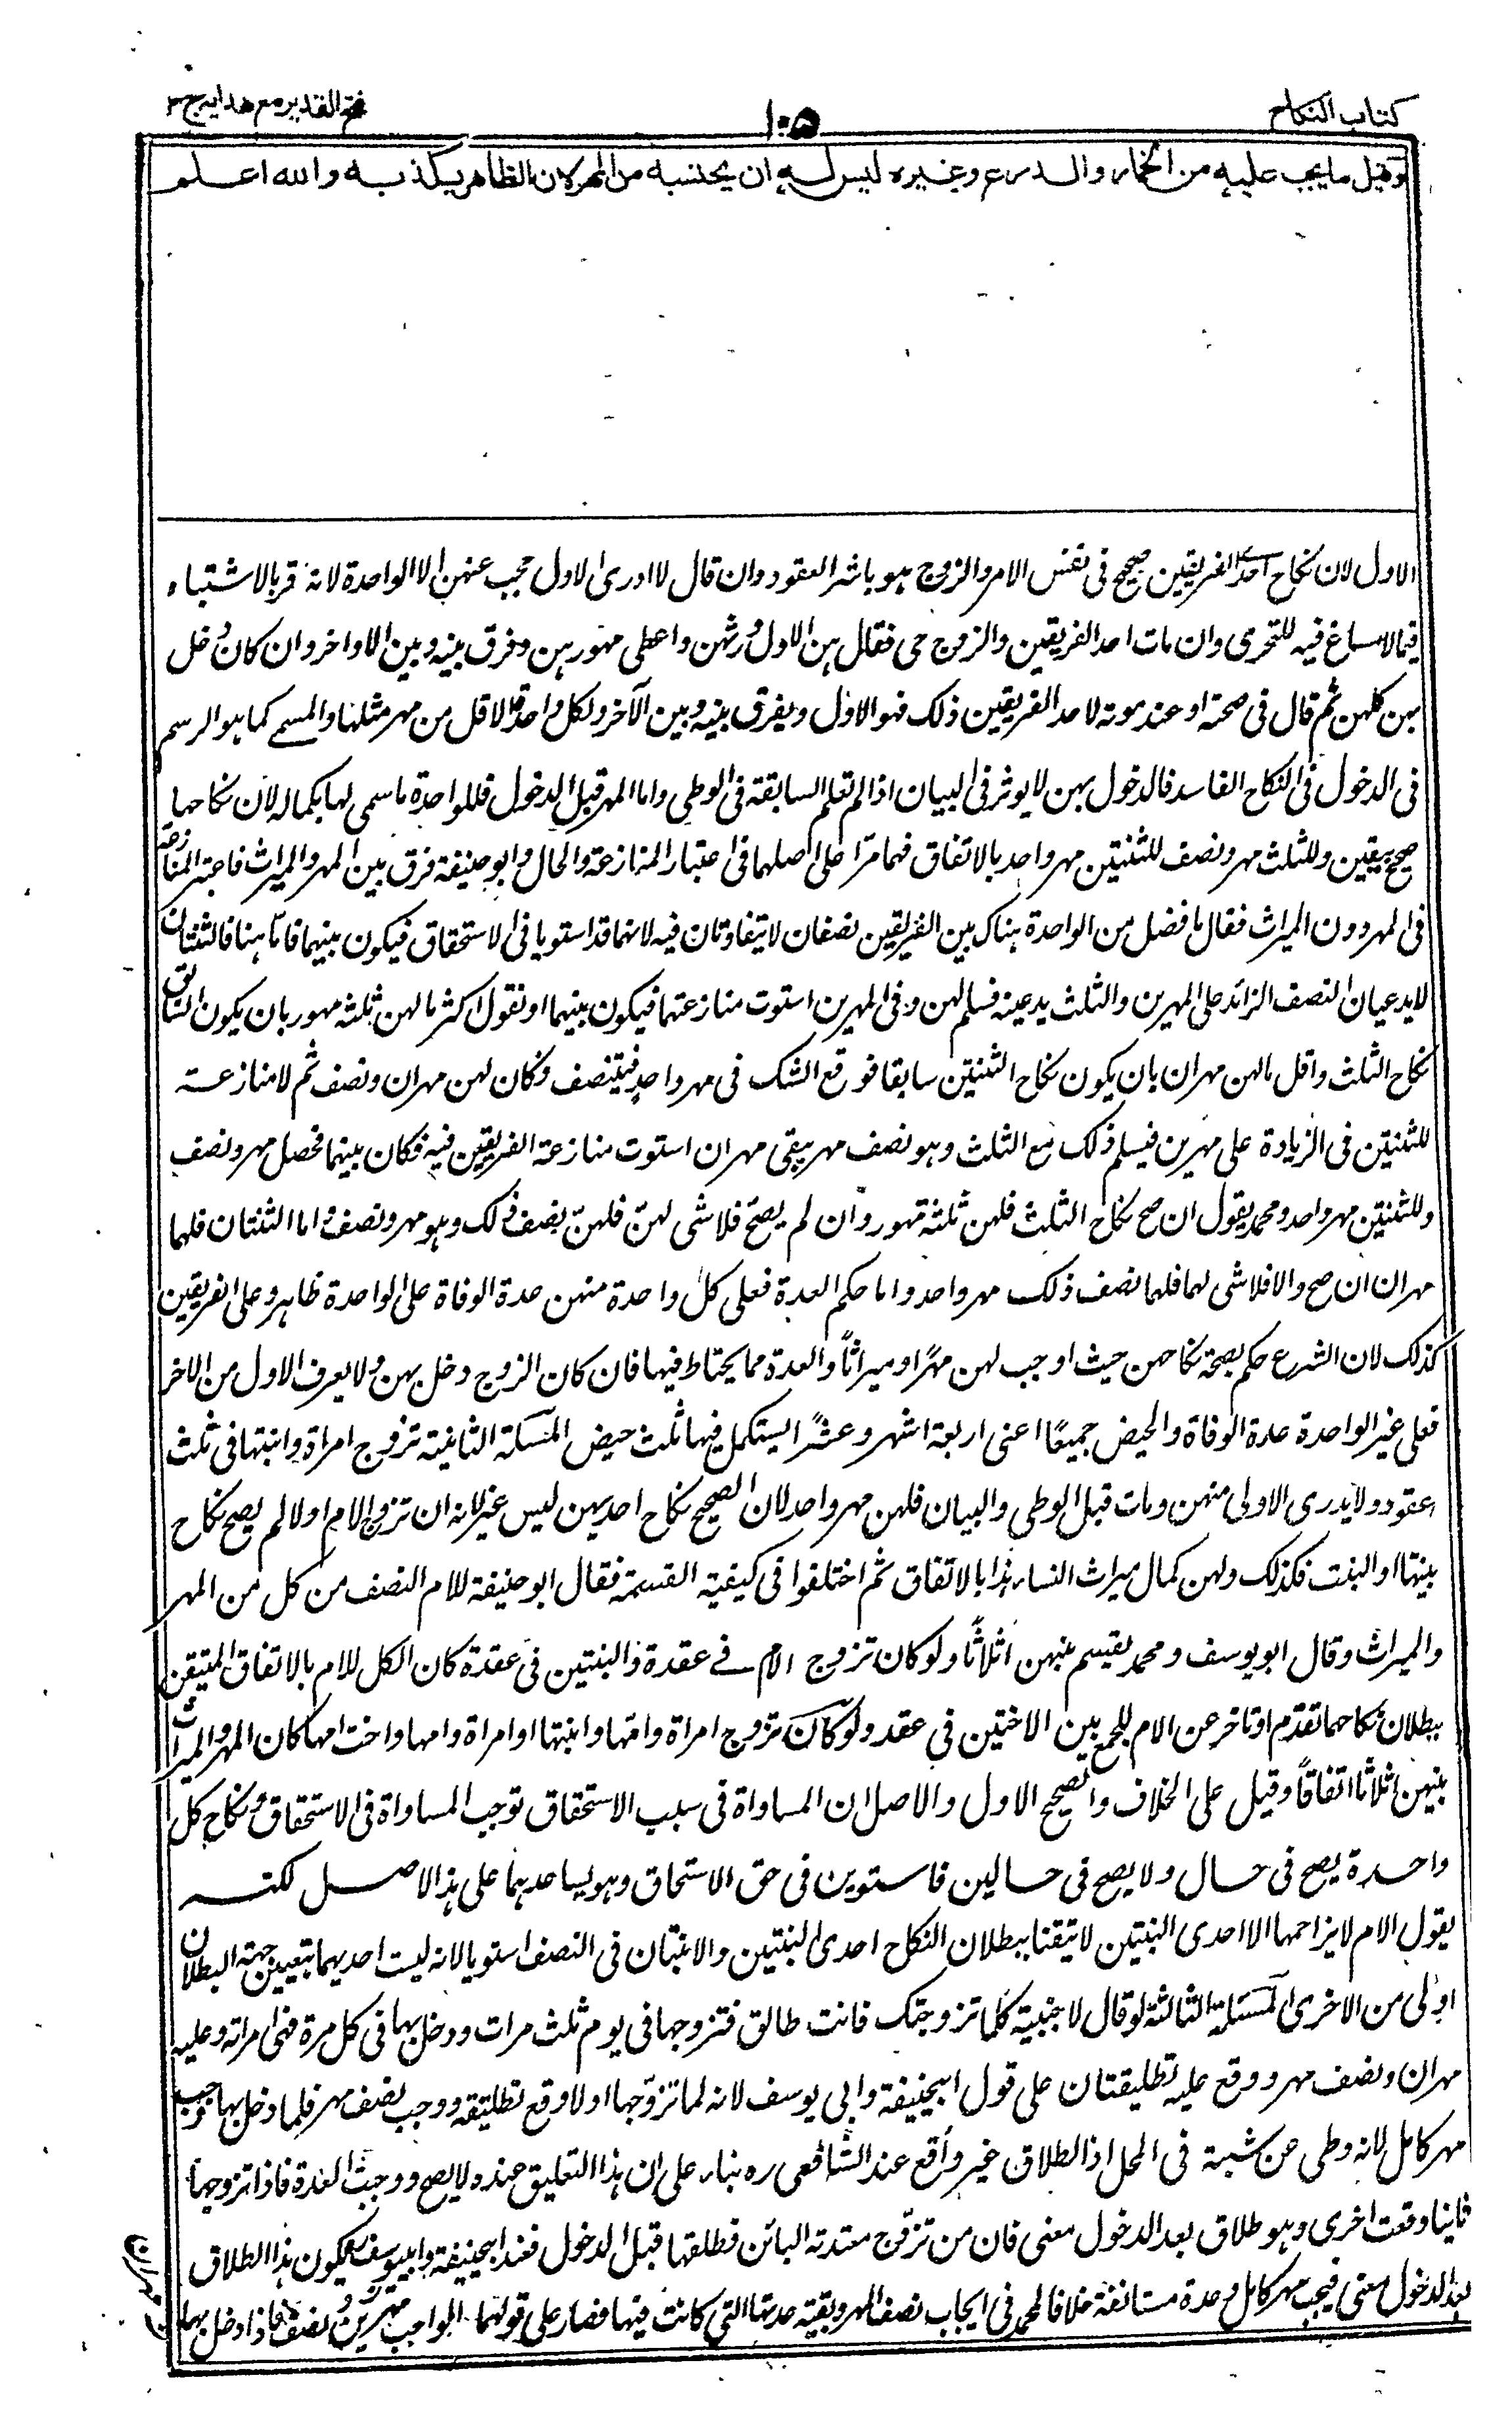 كتاب النكاح
١٠٥
فتح القدير مع هدايه ج ٢
وقيل ما يجب عليه من الخمار والدرع وغيره ليس له ان يحتسبه من المهر لان الظاهر يكذبه والله اعلم
الاول لان نكاح احد الفريقين صحيح فى نفس الامر والزوج هو باشر العقود وان قال لا ادرى الاول حجب عنهن الا الواحدة لانه قر بالاشتباه
فيما لا مساغ فيه للتحرى وان مات احد الفريقين والزوج حى فقال هن الاول ورثهن واعطى مهورهن وفرق بينه وبين الاواخر وان كان دخل
بهن كلهن ثم قال فى صحته او عند موته لاحد الفريقين ذلك فهو الاول ويفرق بينه وبين الآخر ولكل واحدة الاقل من مهر مثلها والمسمے كما هو الرسم
فى الدخول فى النكاح الفاسد فالدخول بهن لا يوثر فى البيان اذا لم تعلم السابقة فى الوطى واما المهر قبل الدخول فللواحدة ما سمى لها بكماله لان نكاحها
صحيح بيقين وللثلث مهر ونصف للثنتين مهر واحد بالاتفاق فهما مرّا على اصلهما فى اعتبار المنازعة والحال وابو حنيفة فرق بين المهر والميراث فاعتبر المنازعة
فى المهر دون الميراث فقال ما فضل من الواحدة هناك بين الفريقين نصفان لا يتفاوتان فيه لانهما قد استويا فى الاستحقاق فيكون بينهما فاما هنا فالثنتان
لا يدعيان النصف الزائد على المهرين والثلث يدعينه فسلم لهن وفى المهرين استوت منازعتهما فيكون بينهما او نقول اكثر ما لهن ثلثه مهور بان يكون السابق
نكاح الثلث واقل ما لهن مهران بان يكون نكاح الثنتين سابقا فوقع الشك فى مهر واحد فيتنصف فكان لهن مهران ونصف ثم لا منازعة
للثنتين فى الزيادة على مهرين فيسلم ذلك مع الثلث وهو نصف مهر يبقى مهران استوت منازعة الفريقين فيه فكان بينهما فحصل مهر ونصف
وللثنتين مهر واحد ومحمد يقول ان صح نكاح الثلث فلهن ثلثه مهور وان لم يصح فلا شى لهنّ فلهنّ نصف ذلك وهو مهر ونصف واما الثنتان فلهما
مهران ان صح والا فلا شى لهما فلهما نصف ذلك مهر واحد واما حكم العدة فعلى كل واحدة منهن عدة الوفاة على الواحدة ظاهر وعلى الفريقين
كذلك لان الشرع حكم بصحة نكاحهن حيث اوجب لهن مهرًا وميراثاً والعدة مما يحتاط فيها فان كان الزوج دخل بهن ولا يعرف الاول من الاخر
فعلى غير الواحدة عدة الوفاة والحيض جميعًا اعنى اربعة اشهر وعشرًا يستكمل فيها ثلث حيض المسئلة الثانية تزوج امراة وابنتها فى ثلث
عقود ولا يدرى الاولى منهن ومات قبل الوطى والبيان فلهن مهر واحد لان الصحيح نكاح احديهن ليس غير لانه ان تزوج الام اولا لم يصح نكاح
بنتها او البنت فكذلك ولهن كمال ميراث النساء هذا بالاتفاق ثم اختلفوا فى كيفية القسمة فقال ابو حنيفة للام النصف من كل من المهر
والميراث وقال ابو يوسف ومحمد يقسم بينهن اثلاثًا ولو كان تزوج الام فے عقدة والبنتين فى عقدة كان الكل للام بالاتفاق المتيقن
ببطلان نكاحهما تقدم او تاخر عن الام للجمع بين الاختين فى عقد ولو كان تزوج امراة وامها وابنتها او امراة وامها واخت امها كان المهر والميراث
بينهن اثلاثا اتفاقًا وقيل على الخلاف والصحيح الاول والاصل ان المساواة فى سبب الاستحقاق توجب المساواة فى الاستحقاق ونكاح كل
واحدة يصح فى حال ولا يصح فى حالين فاستوين فى حق الاستحقاق وهو يساعدهما على هذا الاصل لكنه
يقول الام لا يزاحمها الا احدى البنتين لا تيقنا ببطلان النكاح احدى البنتين والابنتان فى النصف استويا لانه ليست احديهما بتعيين جهة البطلان
اولى من الاخرى المسئلة الثالثة لو قال لاجنبية كلما تزوجتك فانت طالق فتزوجها فى يوم ثلث مرات ودخل بها فى كل مرة فهى امراته وعليه
مهران ونصف مهر ووقع عليه تطليقتان على قول ابيحنيفة وابى يوسف لانه لما تزوّجها اولا وقع تطليقة ووجب نصف مهر فلما دخل بها وجب
مهر كامل لانه وطى عن شبهة فى المحل اذ الطلاق غير واقع عند الشافعى ره بناء على ان هذا التعليق عنده لا يصح ووجبت العدة فاذا تزوجها
ثانيا وقعت اخرى وهو طلاق بعد الدخول معنى فان من تزوّج معتدته البائن فطلقها قبل الدخول فعند ابيحنيفة وابيوسف يكون هذا الطلاق
بعد الدخول معنى فيجب مهر كامل وعدة مستانفة خلافا لمحمد فى ايجاب نصف المهر وبقية عدتها التى كانت فيها فصار على قولهما الواجب مهرين ونصف فاذا دخل بها